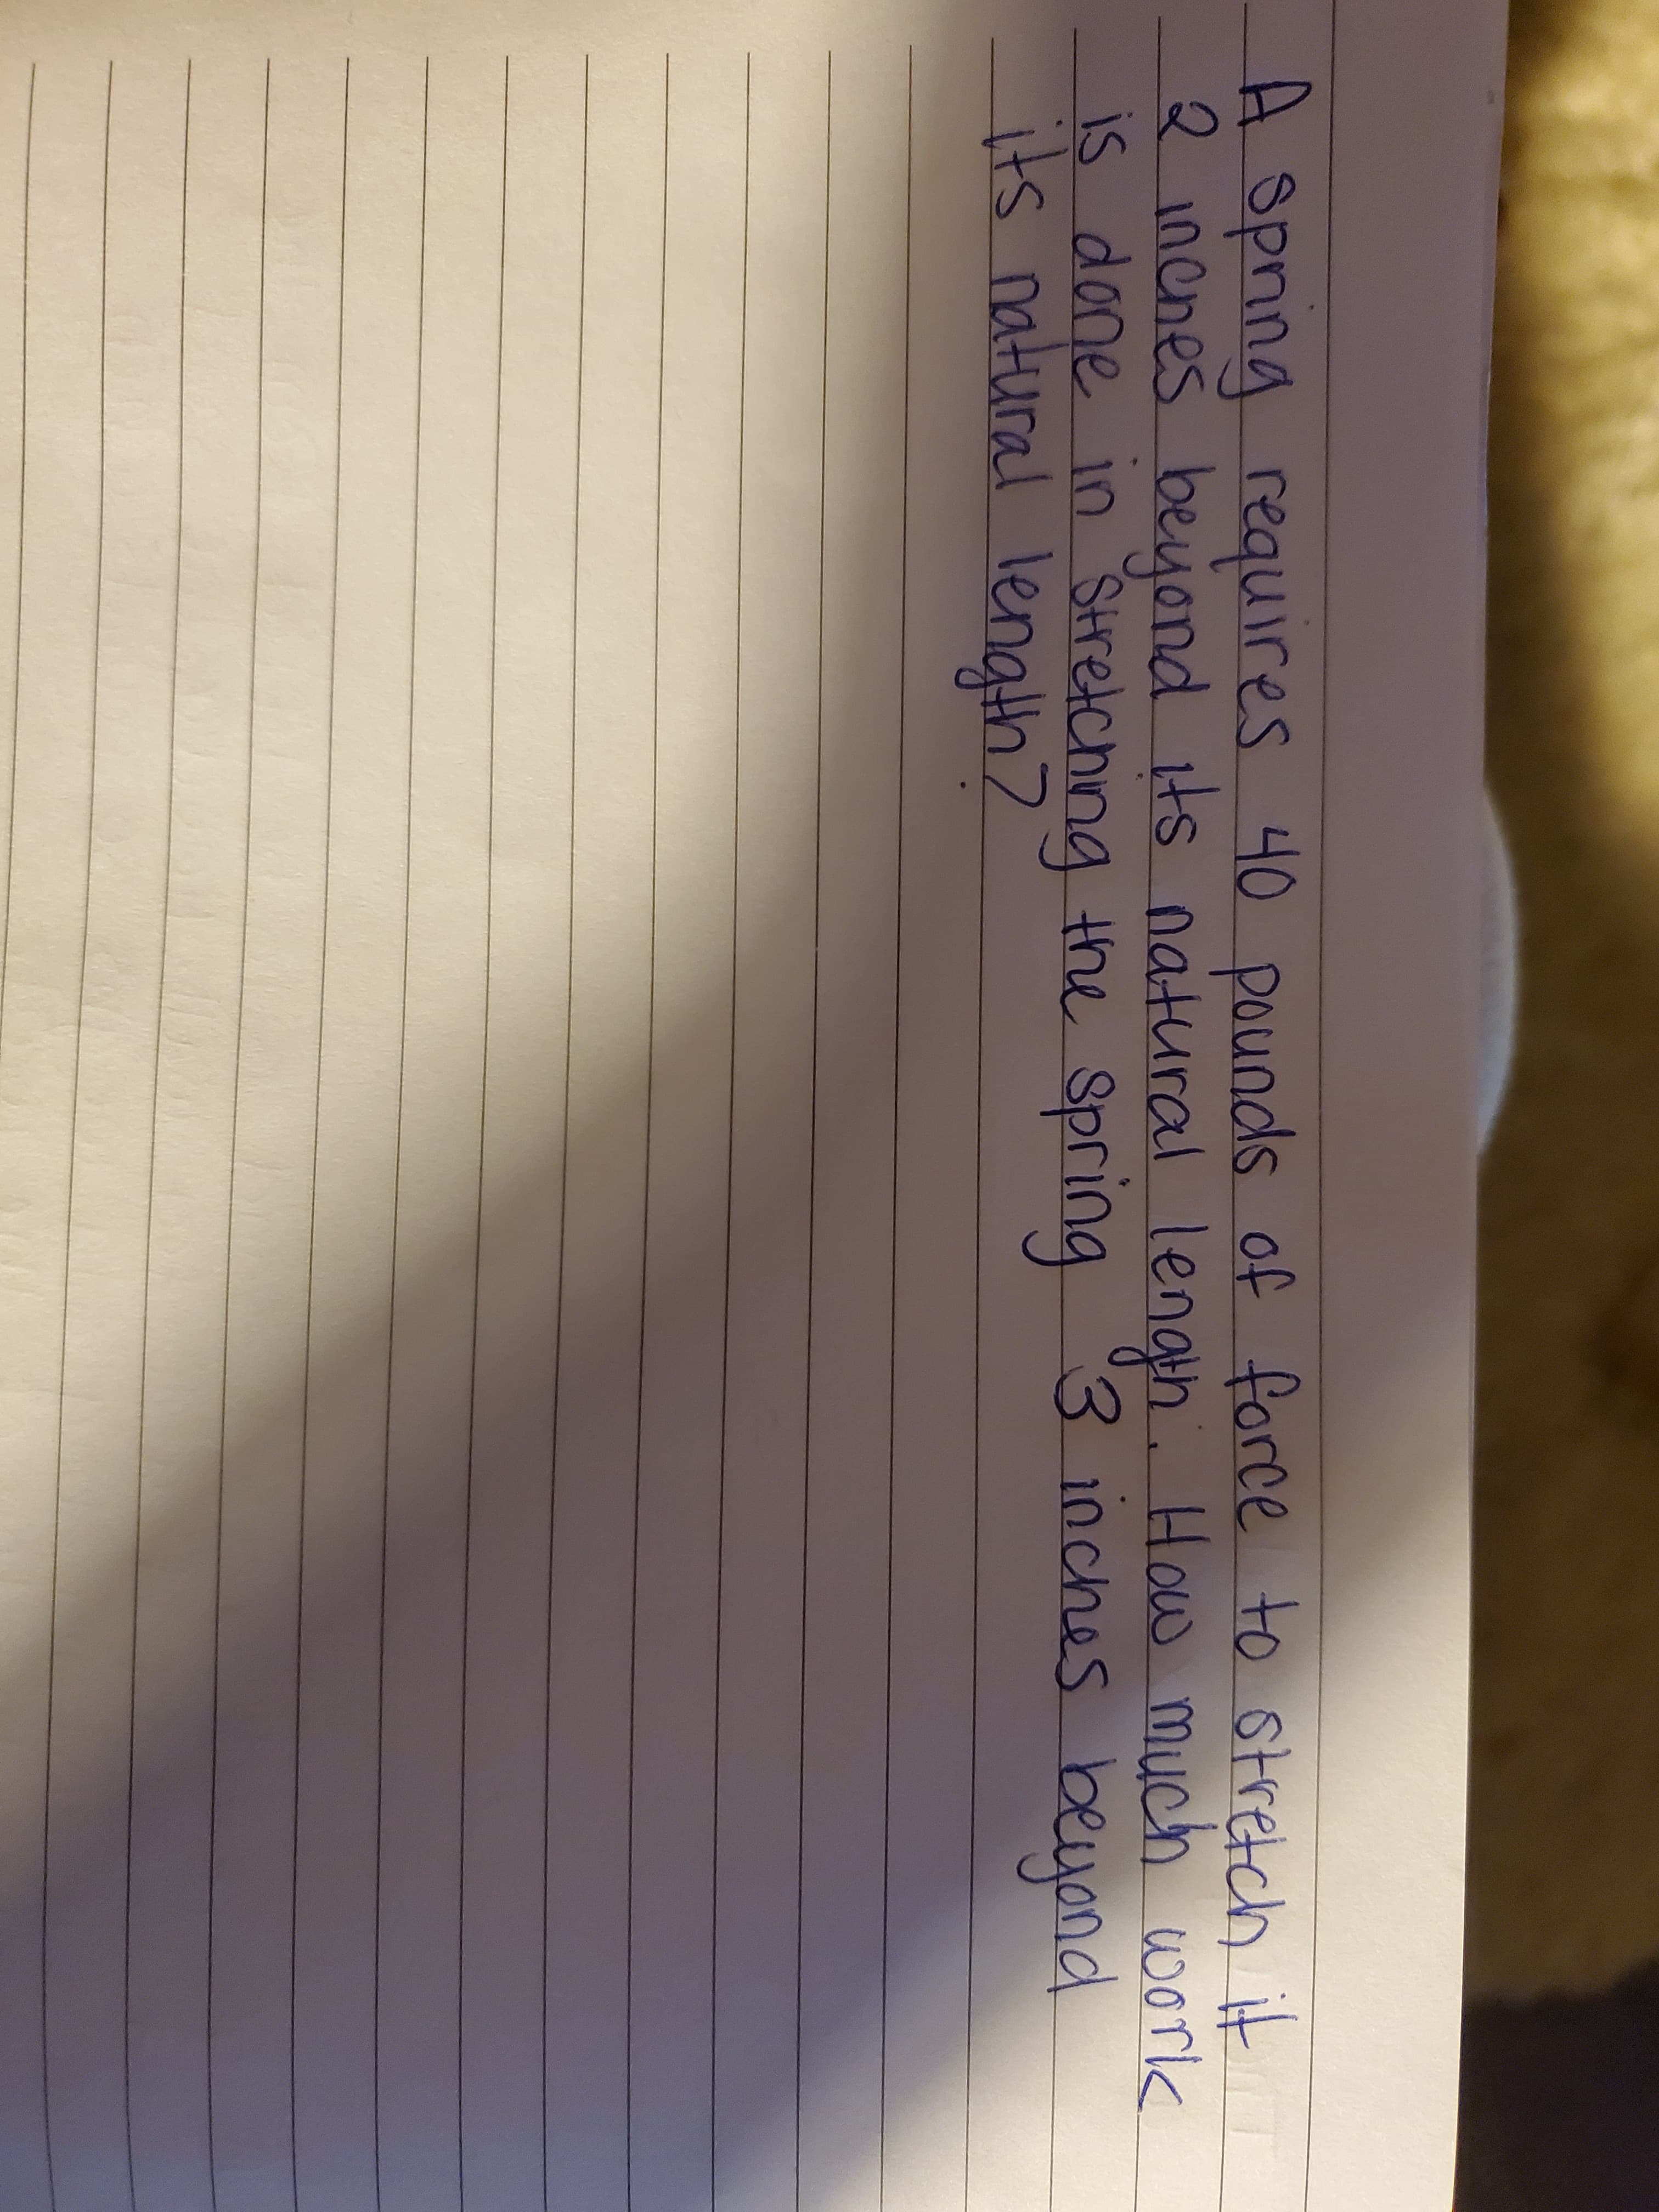 A spring requires 40 pounds of force to stretch it
2 inches beyond its natural length. How much work
is done in stretching the spring 3 inches beyond
its natural length?